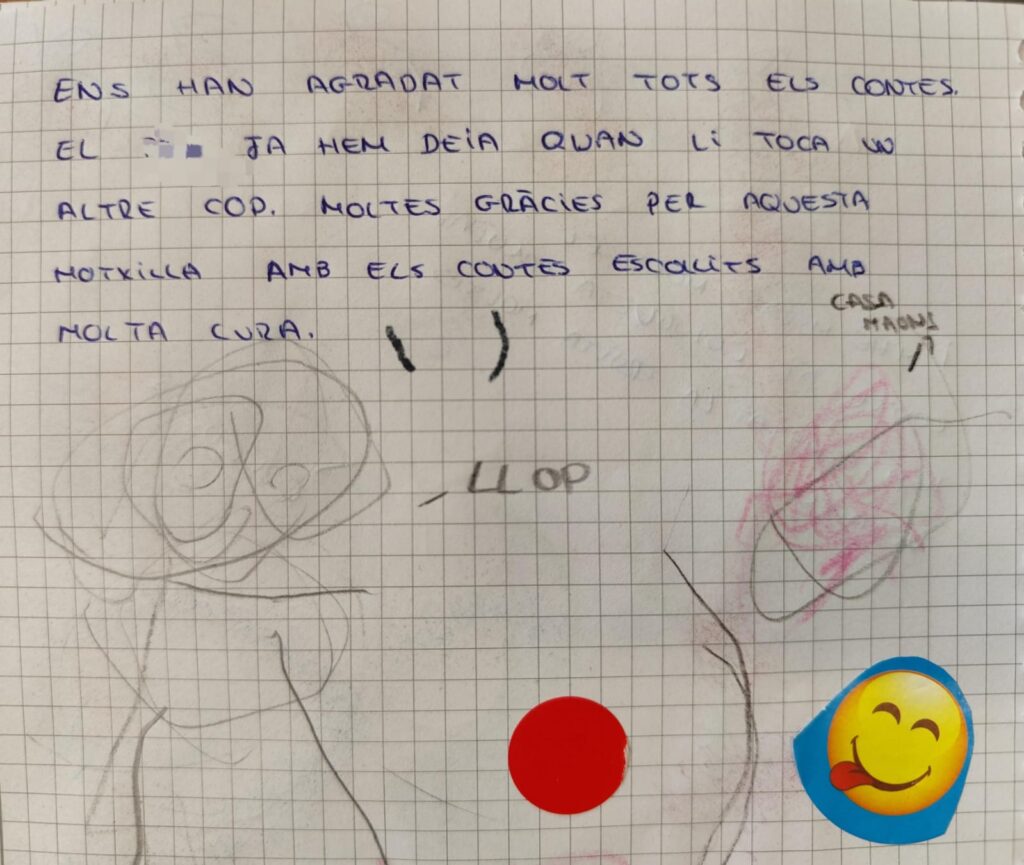 ENS HAN AGRADAT MOLT TOTS ELS CONTES.
EL JA HEM DEIA QUAN LI TOCA UN
ALTRE COP. MOLTES GRÀCIES PER AQUESTA
MOTXILLA AMB ELS CONTES ESCOLLITS AMB
MOLTA CURA.
CASA
MAONS
LLOP